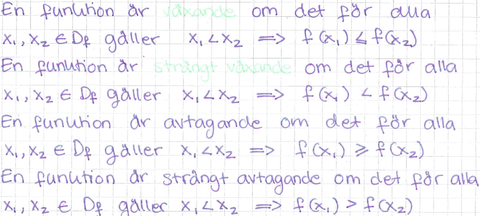 En funktion är växande om det för alla
x₁, x₂ ∈ Df gäller x₁ < x₂ ⟹ f(x₁) ≤ f(x₂)
En funktion är strängt växande om det för alla
x₁, x₂ ∈ Df gäller x₁ < x₂ ⟹ f(x₁) < f(x₂)
En funktion är avtagande om det för alla
x₁, x₂ ∈ Df gäller x₁ < x₂ ⟹ f(x₁) ≥ f(x₂)
En funktion är strängt avtagande om det för alla
x₁, x₂ ∈ Df gäller x₁ < x₂ ⟹ f(x₁) > f(x₂)